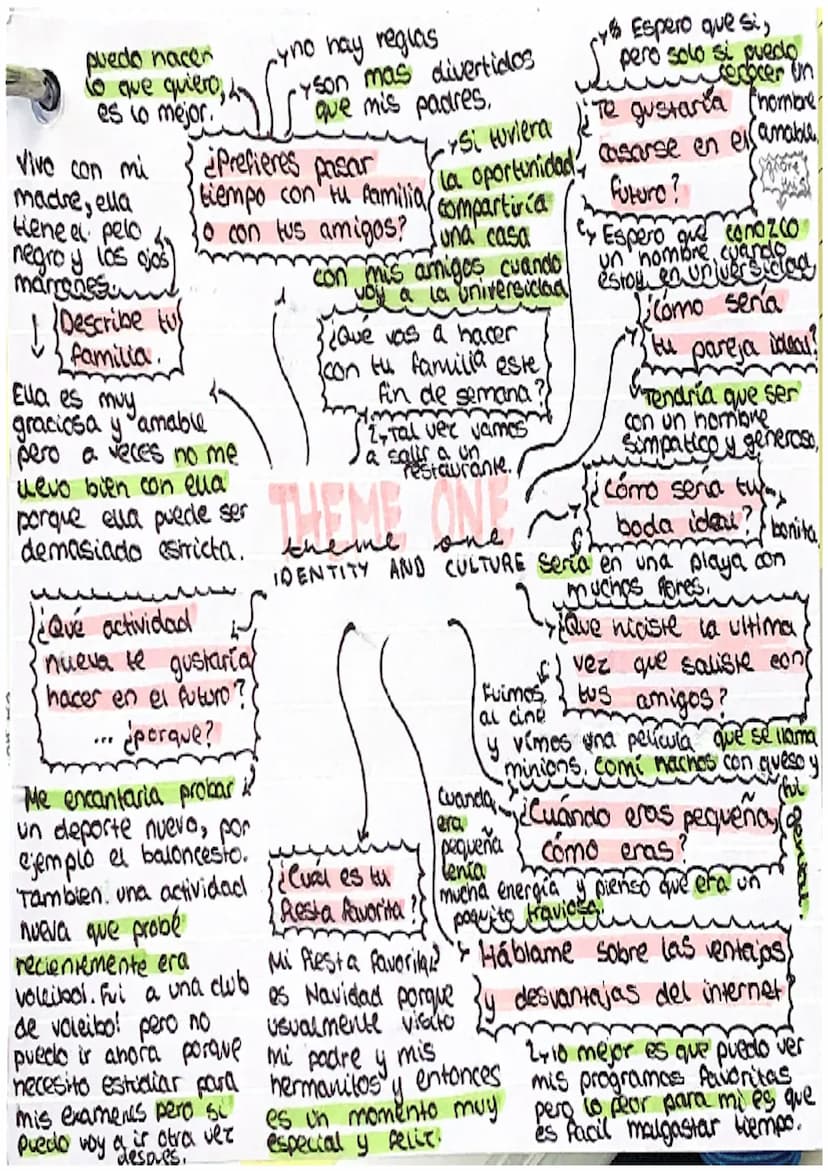 puedo hacer
lo que quiero,
es lo mejor.
no hay reglas
son mas divertidos
que mis padres.
¿Prefieres pasar
tiempo con tu familia
o con tus amigos?
Si tuviera
la oportunidad
compartiría
una casa
con mis amigos cuando
voy a la universidad
Espero que si,
pero solo si puedo
conocer un
hombre
amable.
¿Te gustaría
casarse en el
futuro?
Espero que conozco
un hombre cuando
estoy en universidad
Vivo con mi
madre, ella
tiene el pelo
negro y los ojos
marrones.
Describe tu
familia.
Ella es muy
graciosa y amable
pero a veces no me
llevo bien con ella
porque ella puede ser
demasiado estricta.
¿Qué vas a hacer
con tu familia este
fin de semana?
Tal vez vamos
a salir a un
restaurante.
¿Cómo sería
tu pareja ideal?
Tendría que ser
con un hombre
simpatico y generoso.
¿Cómo sería tu
boda ideal?
bonita.
Sería en una playa con
muchos flores.
THEME ONE
theme one
IDENTITY AND CULTURE
¿Qué actividad
nueva te gustaría
hacer en el futuro?
... ¿porque?
Me encantaria probar
un deporte nuevo, por
ejemplo el baloncesto.
Tambien. una actividad
nueva que probé
recientemente era
voleibol. Fui a una club
de voleibol pero no
puedo ir ahora porque
necesito estudiar para
mis examenes pero si
puedo voy a ir otra vez
despues.
¿Que hiciste la ultima
vez que saliste con
tus amigos?
Fuimos
al cine
y vimos una película que se llama
minions. comí nachos con queso y
fui
¿Cuándo eras pequeña,
cómo eras?
Cuando
era
pequeña
tenía
mucha energía y pienso que era un
poquito traviosa.
¿Cuál es tu
fiesta favorita?
Mi fiesta favorita
es Navidad porque
usualmente visito
mi padre y mis
hermanitos y entonces
es un momento muy
especial y feliz.
Háblame sobre las ventajas
y desvantajas del internet
lo mejor es que puedo ver
mis programas favoritas
pero lo peor para mi es que
es facil malgastar tiempo.